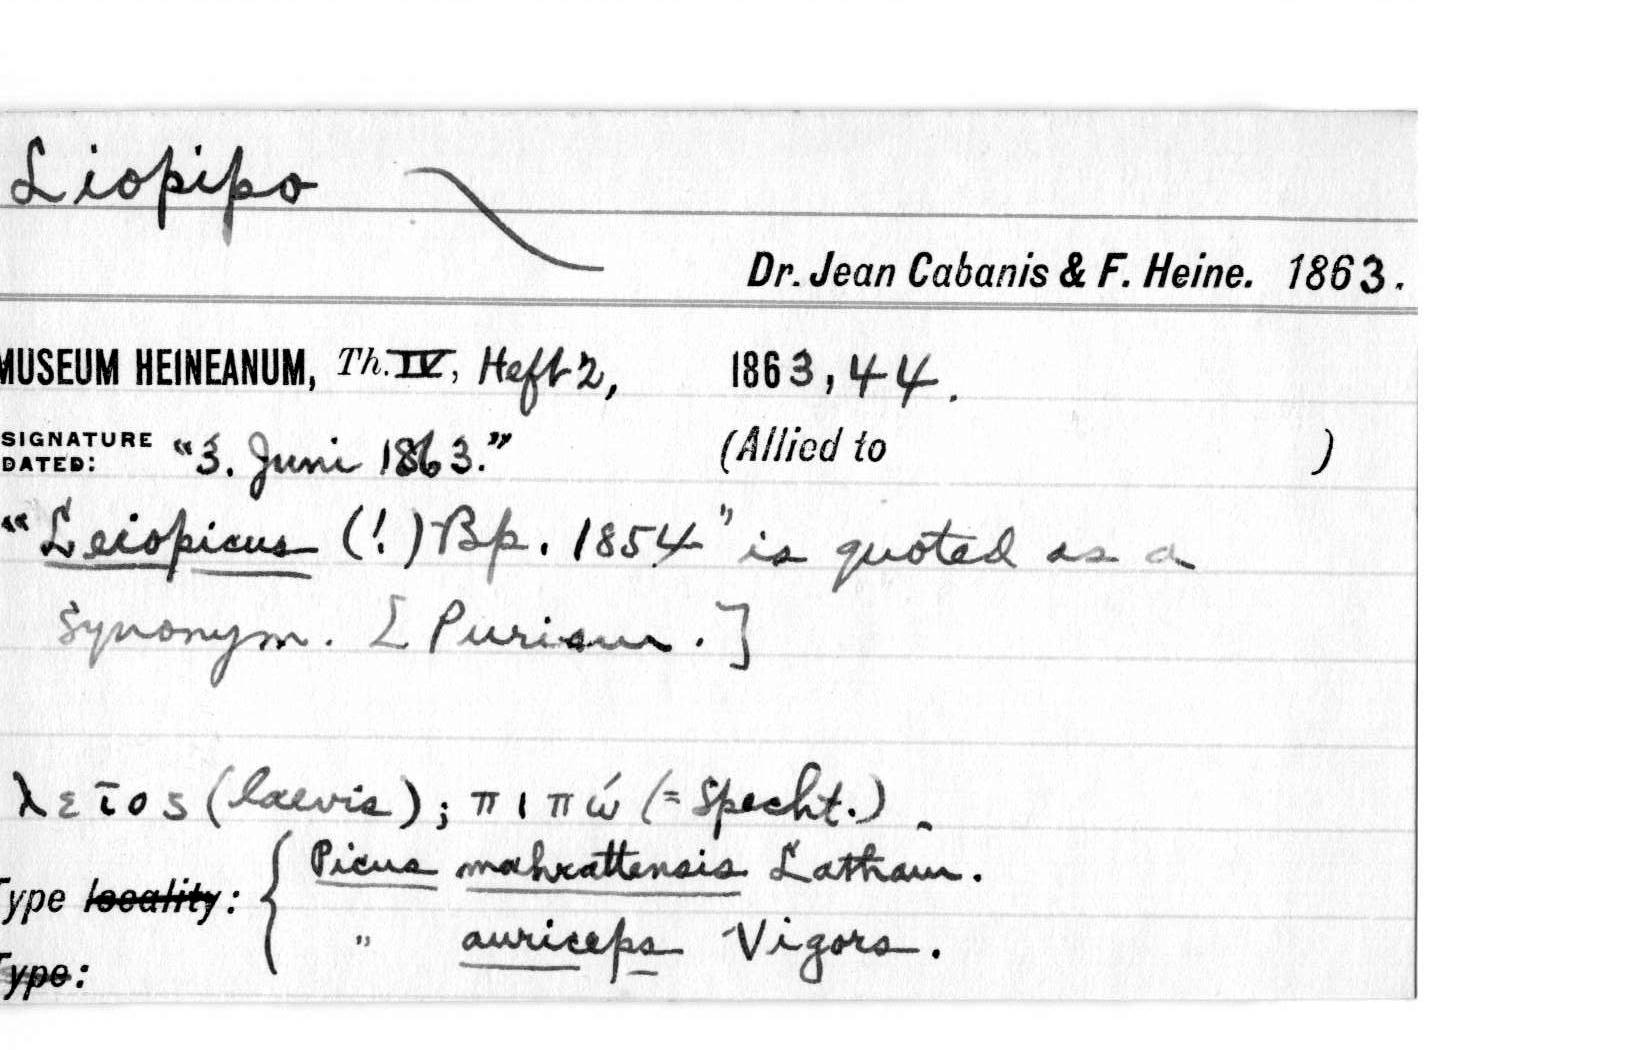 Liopipo
Dr. Jean Cabanis & F. Heine. 1863.
MUSEUM HEINEANUM, Th. IV, Heft 2, 1863, 44.
SIGNATURE DATED: "3. Juni 1863." (Allied to )
"Leiopicus (!) Bp. 1854" is quoted as a
synonym. [Purism.]
λεῖος (laevis); πιπώ (= Specht.).
Type locality: { Picus mahrattensis Latham.
" auriceps Vigors.
Type: